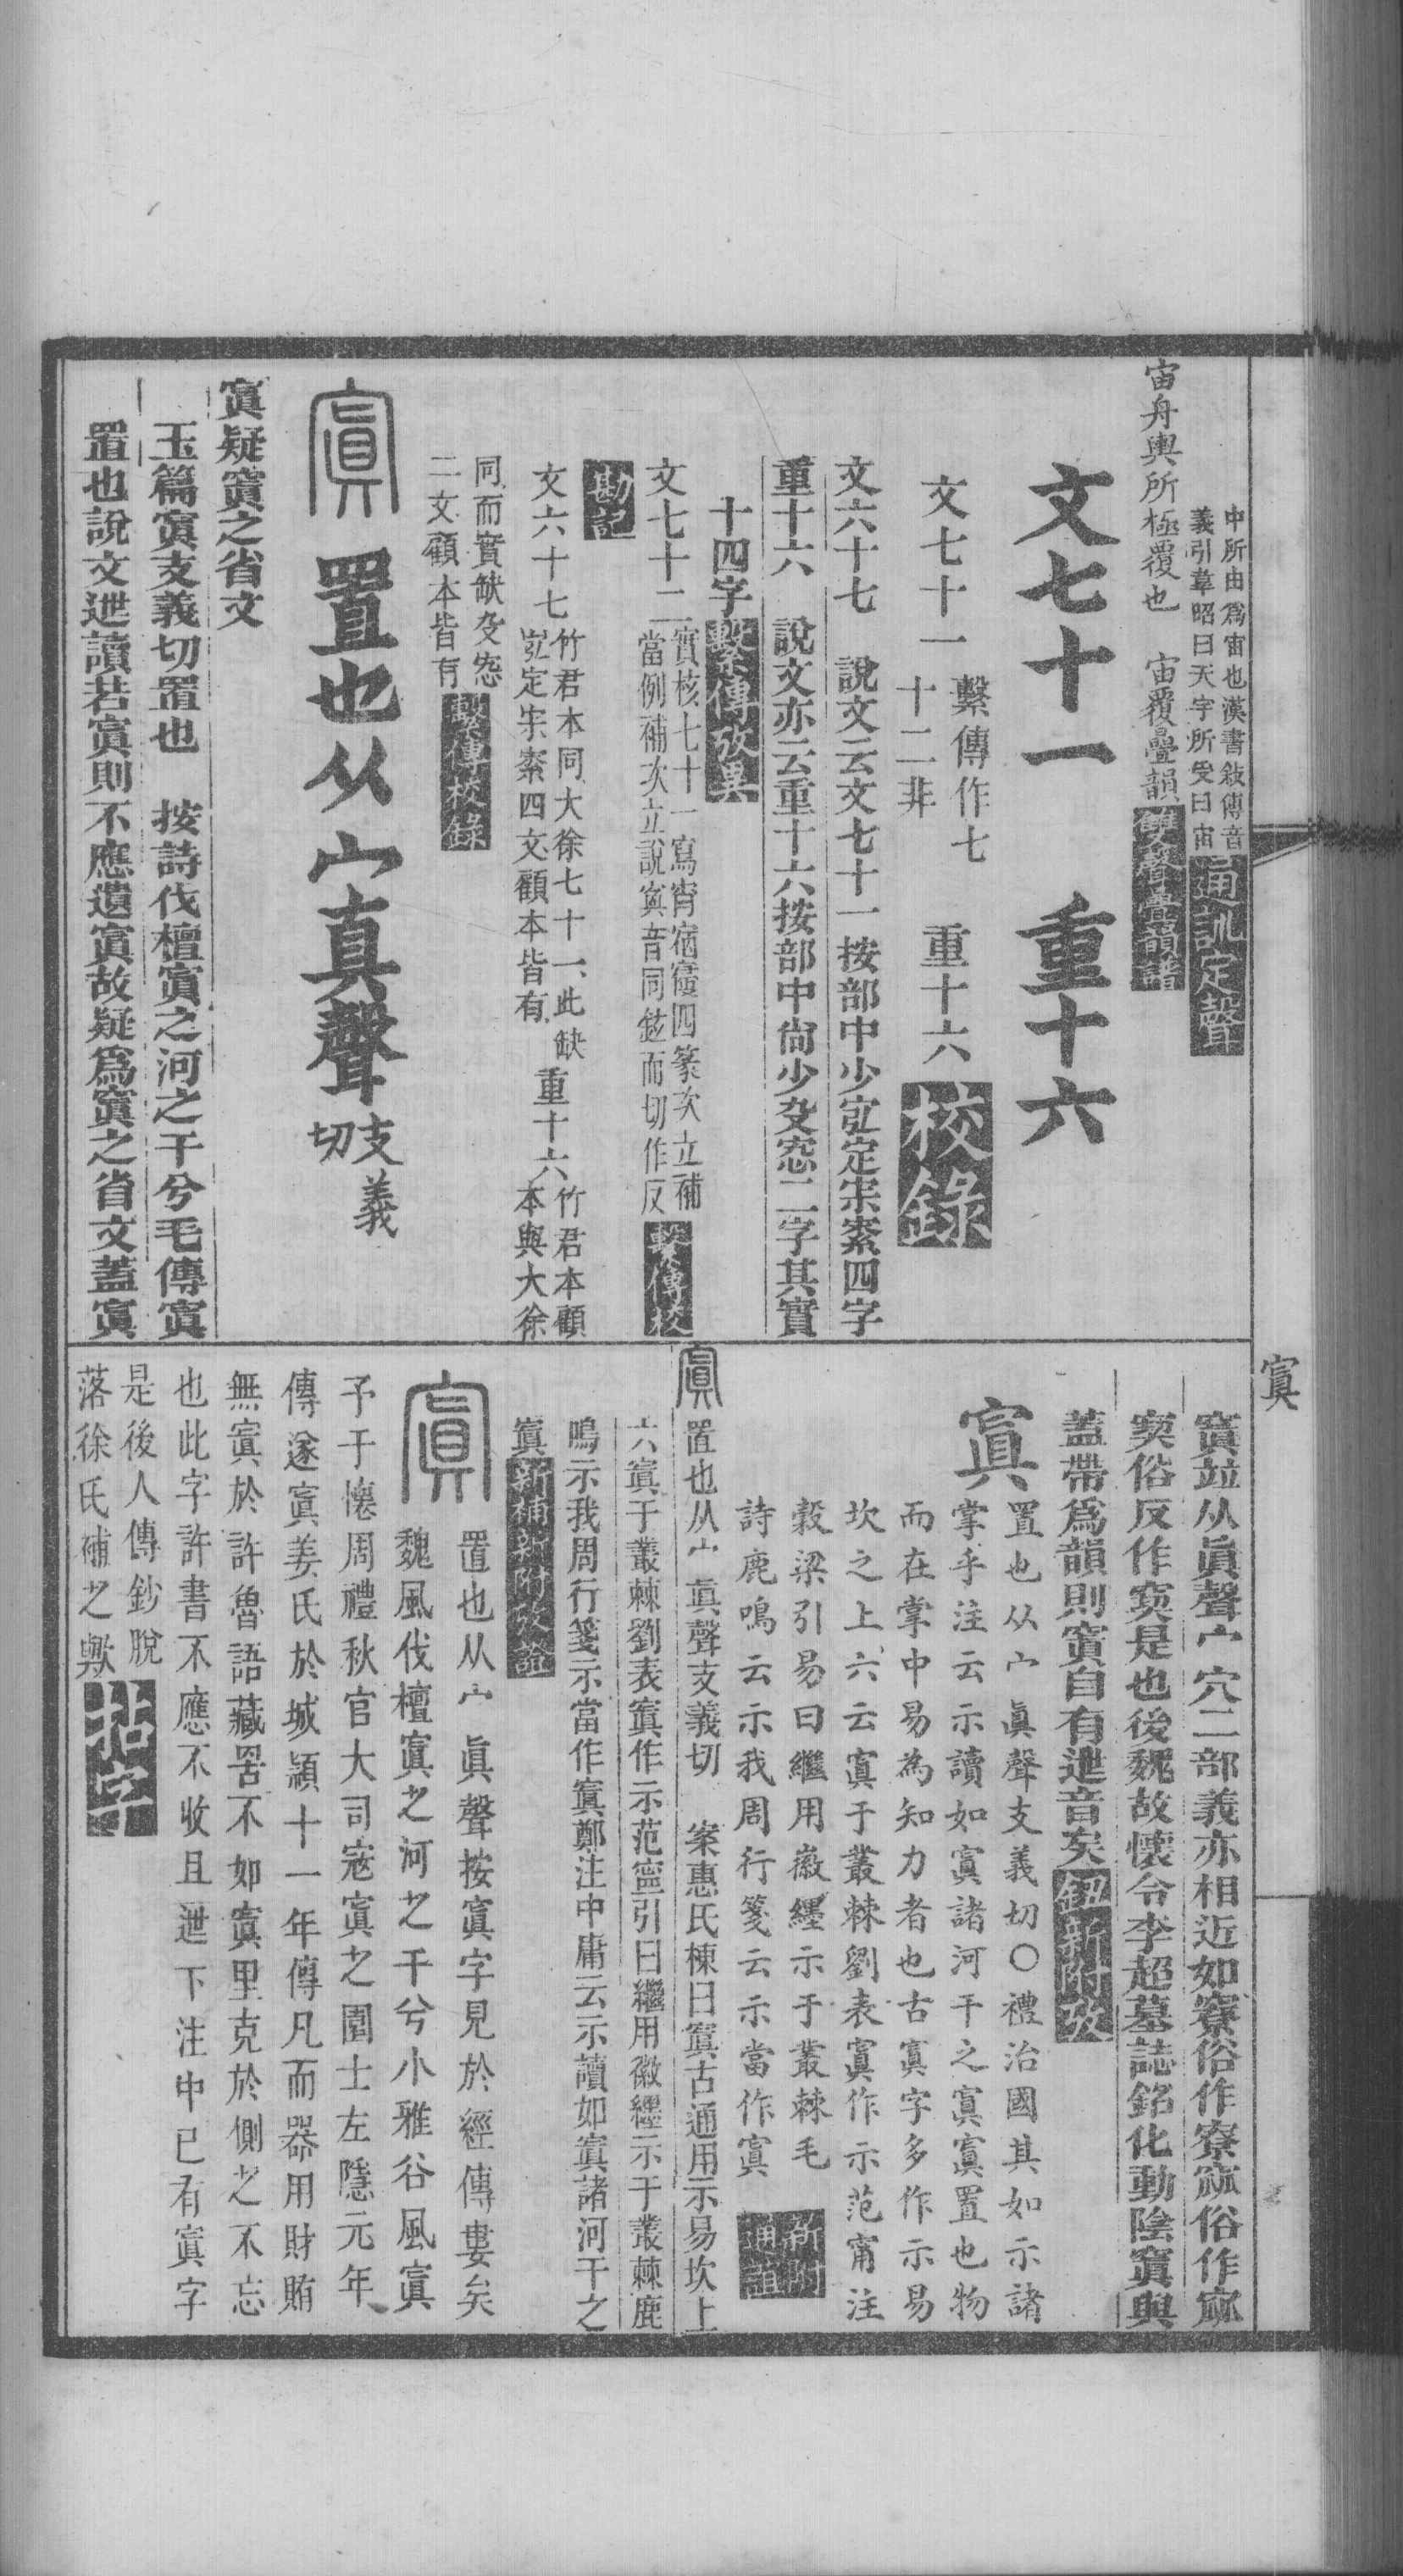 中所由爲宙也漢書敍傳音
義引韋昭曰天宇所受曰宙通訓定聲
宙舟輿所極覆也　宙覆疊韻雙聲疊韻譜
文七十一　重十六
文七十一繫傳作七十二非　重十六校錄
文六十七　說文云文七十一按部中少宖定宋㝮四字
重十六　說文亦云重十六按部中尙少㝊窓二字其實
十四字繫傳攷異
文七十二實核七十一寫宵宿㝲四篆次立補
當例補次立說寘音同鉉而切作反繫傳校
勘記
文六十七竹君本同大徐七十一此缺
宖定宋㝮四文顧本皆有　重十六竹君本顧
本與大徐
同而實缺㝊窓
二文顧本皆有繫傳校錄
寘　置也从宀真聲支義切
寘疑窴之省文
玉篇寘支義切置也　按詩伐檀寘之河之干兮毛傳寘
置也說文迣讀若寘則不應遺寘故疑爲窴之省文蓋寘
寘
窴竝从眞聲宀穴二部義亦相近如竂俗作寮寐俗作㝥
窦俗反作寏是也後魏故懷令李超墓誌銘化動陰寘與
蓋帶爲韻則窴自有迣音矣鈕新附攷
寘置也从宀眞聲支義切〇禮治國其如示諸
掌乎注云示讀如寘諸河干之寘寘置也物
而在掌中易為知力者也古寘字多作示易
坎之上六云寘于叢棘劉表寘作示范甯注
穀梁引易曰繼用徽纆示于叢棘毛
詩鹿鳴云示我周行箋云示當作寘新附通誼
寘置也从宀眞聲支義切　案惠氏棟曰寘古通用示易坎上
六寘于叢棘劉表寘作示范寧引曰繼用徽纆示于叢棘鹿
鳴示我周行箋示當作寘鄭注中庸云示讀如寘諸河干之
寘新補新附攷證
寘　置也从宀眞聲按寘字見於經傳婁矣
魏風伐檀寘之河之干兮小雅谷風寘
予于懷周禮秋官大司寇寘之圜土左隱元年
傳遂寘姜氏於城潁十一年傳凡而器用財賄
無寘於許魯語藏罟不如寘里克於側之不忘
也此字許書不應不收且迣下注中已有寘字
是後人傳鈔脫
落徐氏補之歟拈字